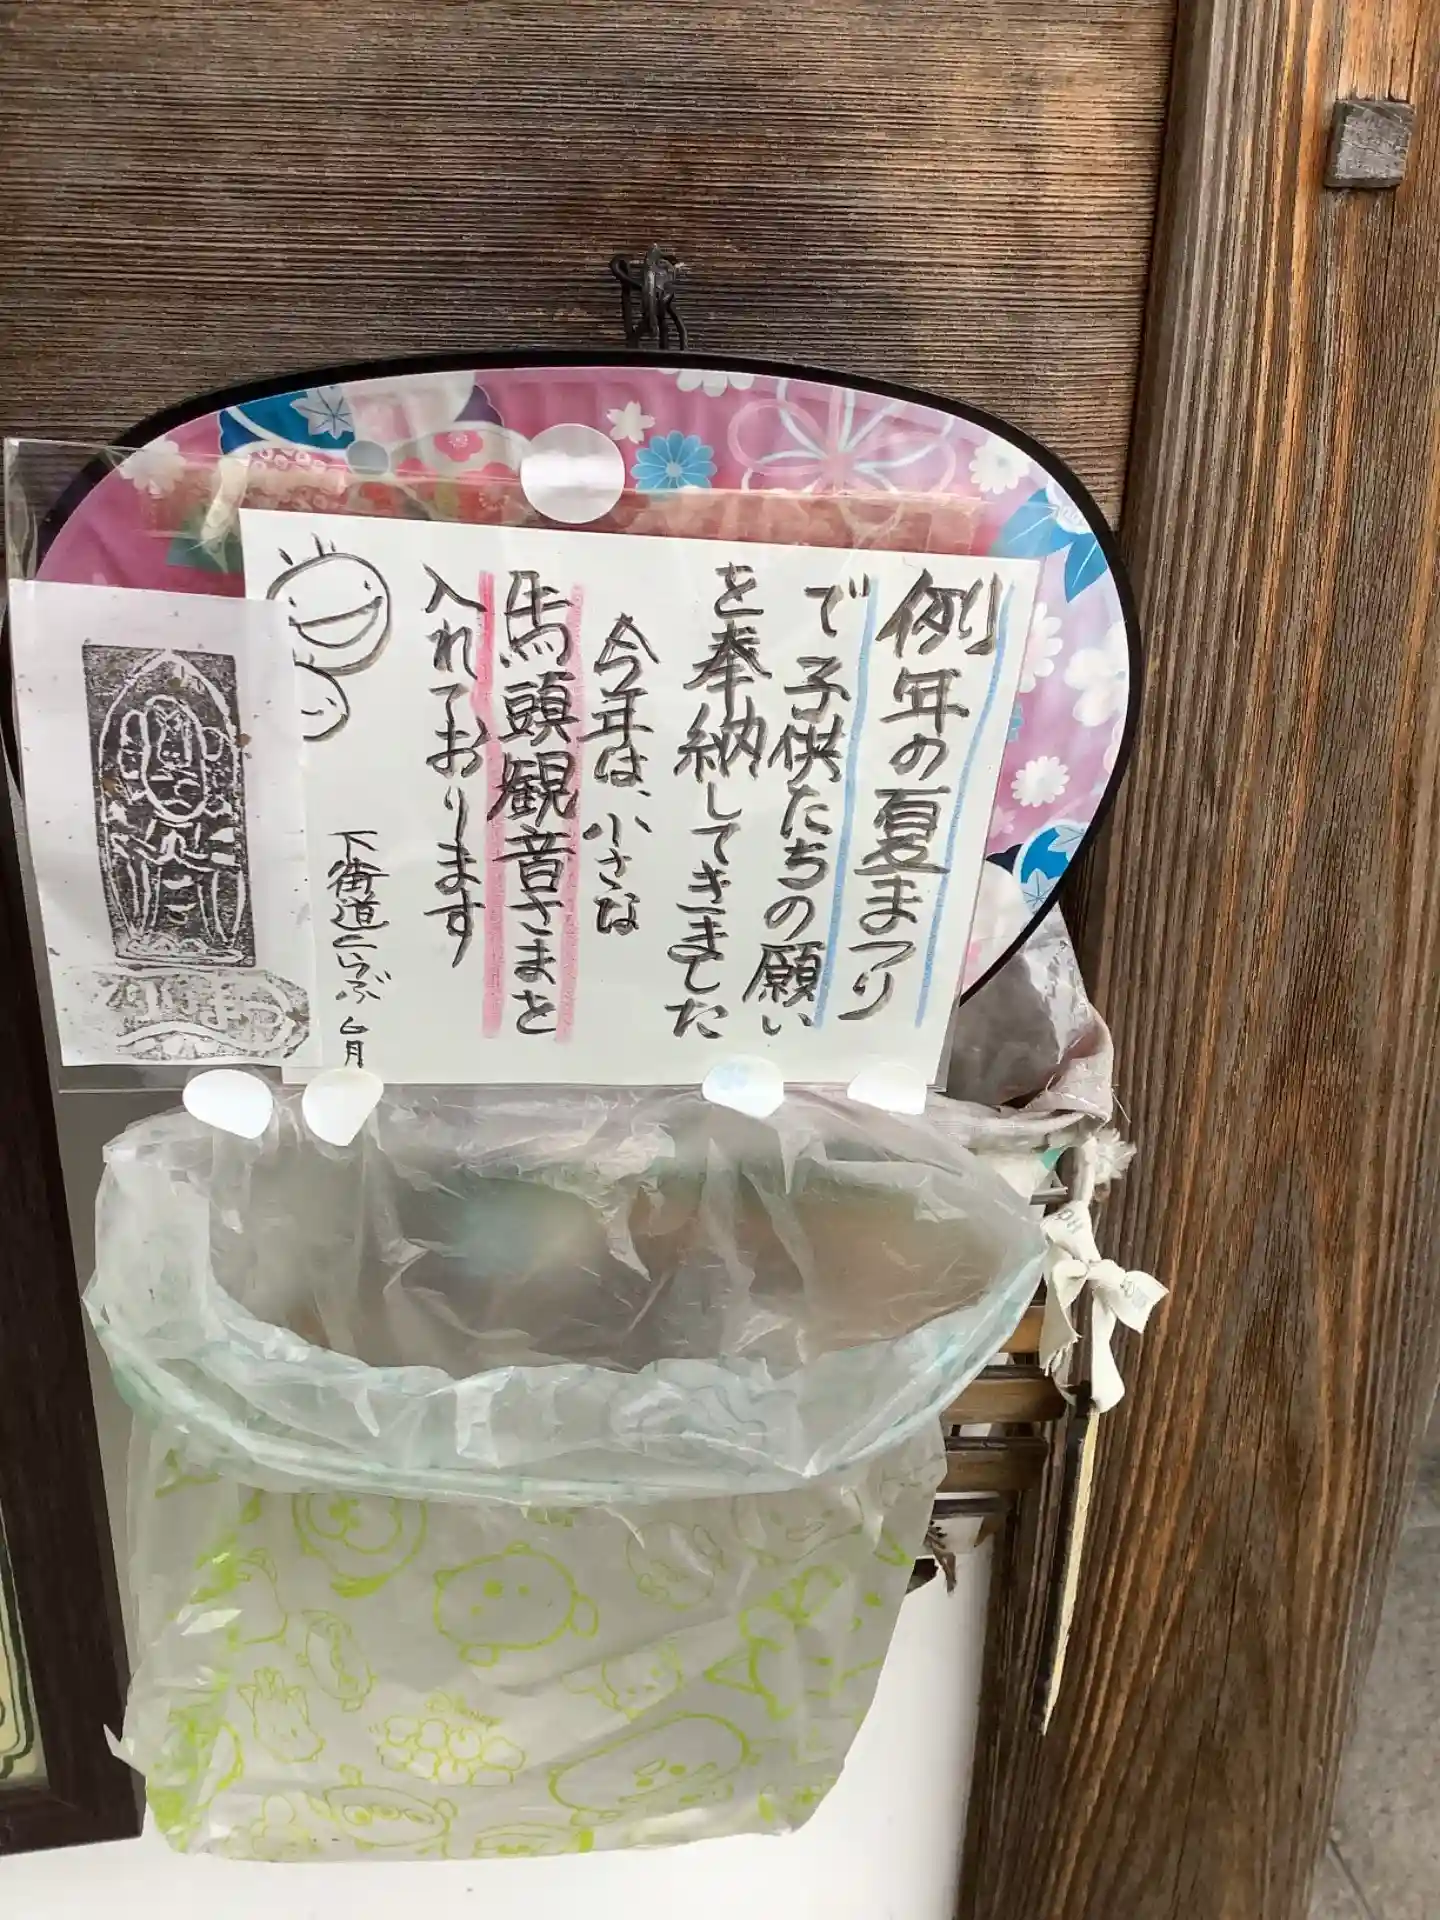 例年の夏まつり
で子供たちの願い
を奉納してきました
今年は、小さな
馬頭観音さまを
入れております
下街道こいぶ 6月